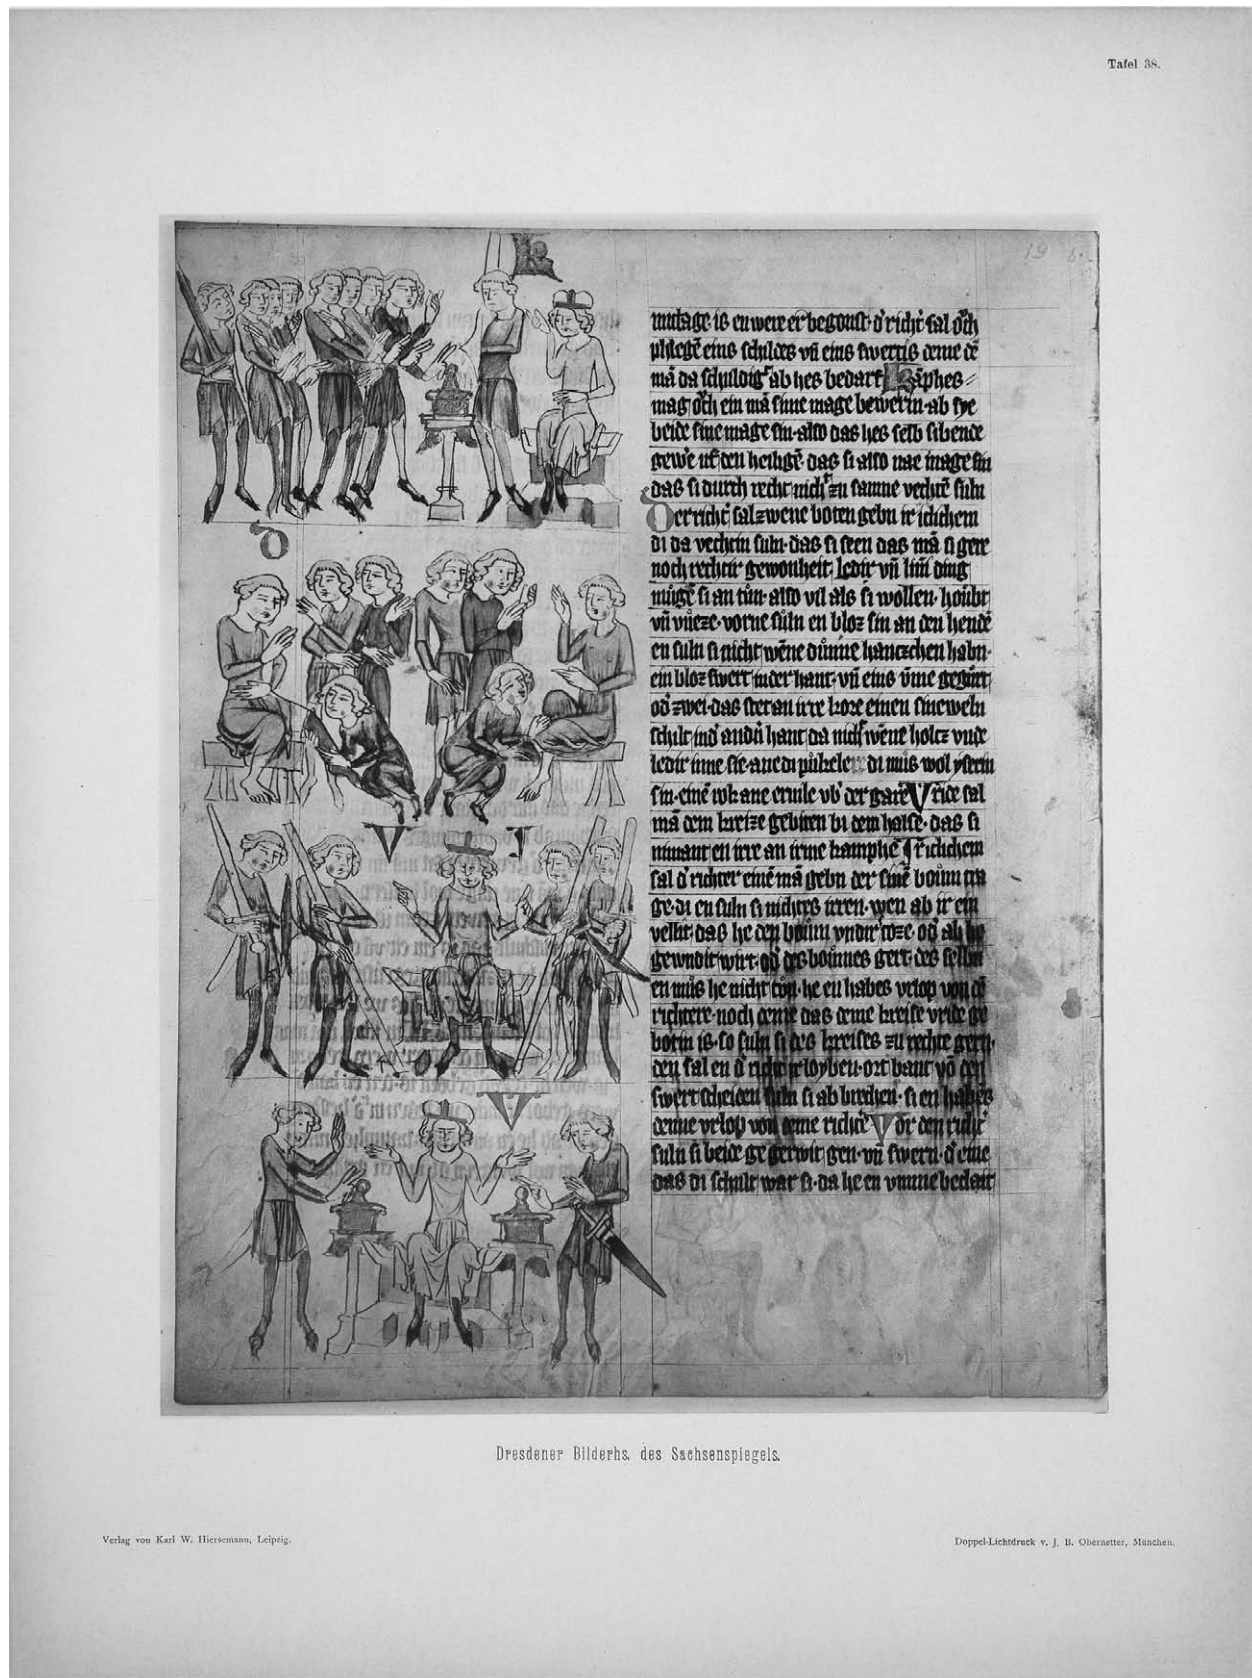 Tafel 38.
19 6.
K
mitage· is en were er begonst· d' richt' sal och
phlegē eins schildes vn̄ eins swertis deme dē
mā da schuldigt ab hes bedarf Kāphes
mag och ein mā sine mage bewerin· ab sye
beide sine mage sin· also das hes selb sibende
gewe uf den heiligē das si also nae mage sin
das si durch recht nicht zu samne vechtē suln
Der richt' sal zwene boten gebn ir iclichem
di da vechtin suln· das si seen das mā si gere
noch rechtir gewonheit ledir vn̄ linī ding
mugē si an tun· also vil als si wollen· houbt
vn̄ vuze· vorne suln en bloz sin an den hendē
en suln si nicht wēne dunne hantzchen habn·
ein bloz swert in der hant· vn̄ eins vm̄e gegurt
od' zwei· das stet an irre kore einen sineweln
schilt ind' andn̄ hant da nicht wēne holcz vnde
ledir inne sie· ane di pukeler di mus wol yserin
sin· einē rok ane ermle vb' der gare Vride sal
mā dem kreize gebiten bi dem halse· das si
nimant en irre an irme kamphe Ir iclichem
sal d' richter einē mā gebn der sinē boum tra
ge· di en suln si nichtes irren· wen ab ir ein
vellit· das he den boum vndir stoze· od' ab he
gewndit wirt· od' des boumes gert· des selbn
en mus he nicht tun· he en habes vrlop von dē
richtere· noch deme das deme kreise vride ge
botin is· so suln si des kreises zu rechte gern·
den sal en d' richt' irloyben· ort bant vō den
swert scheiden suln si ab brechen· si en habes
denne vrlop von deme richte' Vor den richt'
suln si beide gegerwit gen· vn̄ swern· d' eine
das di schult war si· da he en vmme beclait
D
V I
V
Dresdener Bilderhs. des Sachsenspiegels.
Verlag von Karl W. Hiersemann, Leipzig.
Doppel-Lichtdruck v. J. B. Obernetter, München.